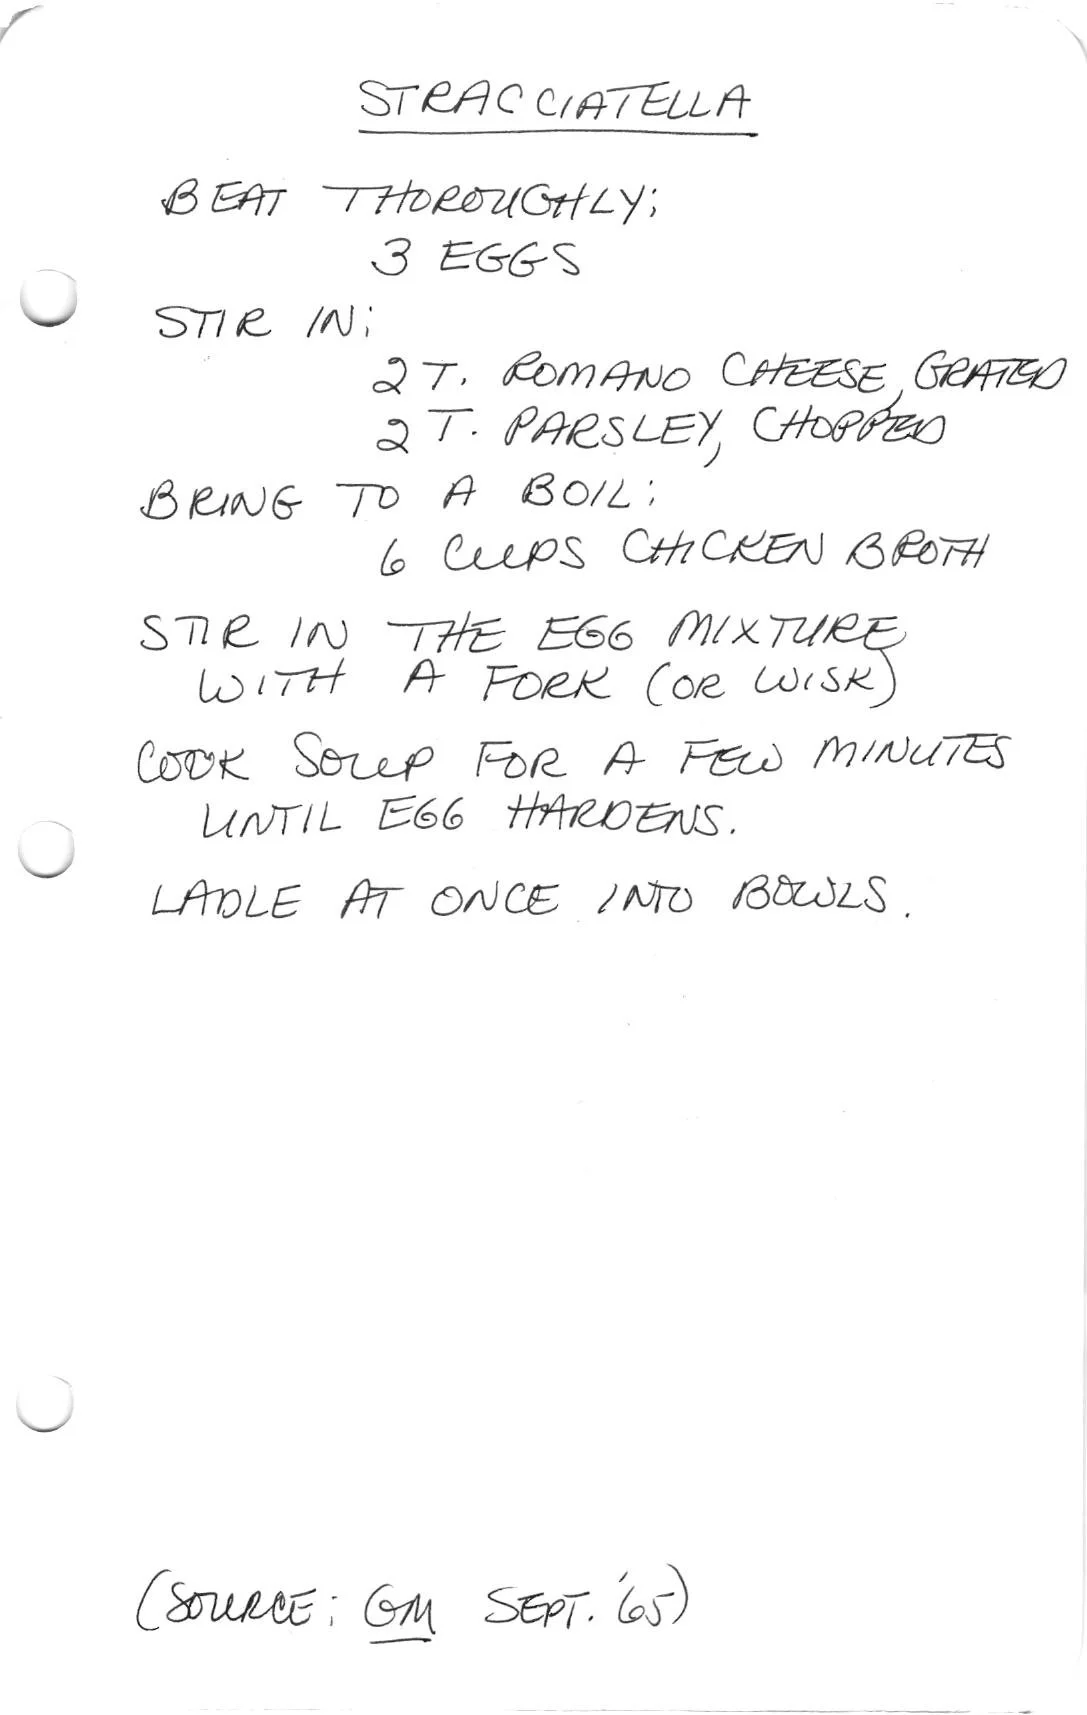 STRACCIATELLA
BEAT THOROUGHLY:
3 EGGS
STIR IN:
2 T. ROMANO CHEESE, GRATED
2 T. PARSLEY, CHOPPED
BRING TO A BOIL:
6 CUPS CHICKEN BROTH
STIR IN THE EGG MIXTURE
WITH A FORK (OR WISK)
COOK SOUP FOR A FEW MINUTES
UNTIL EGG HARDENS.
LADLE AT ONCE INTO BOWLS.
(SOURCE: GM SEPT. '65)